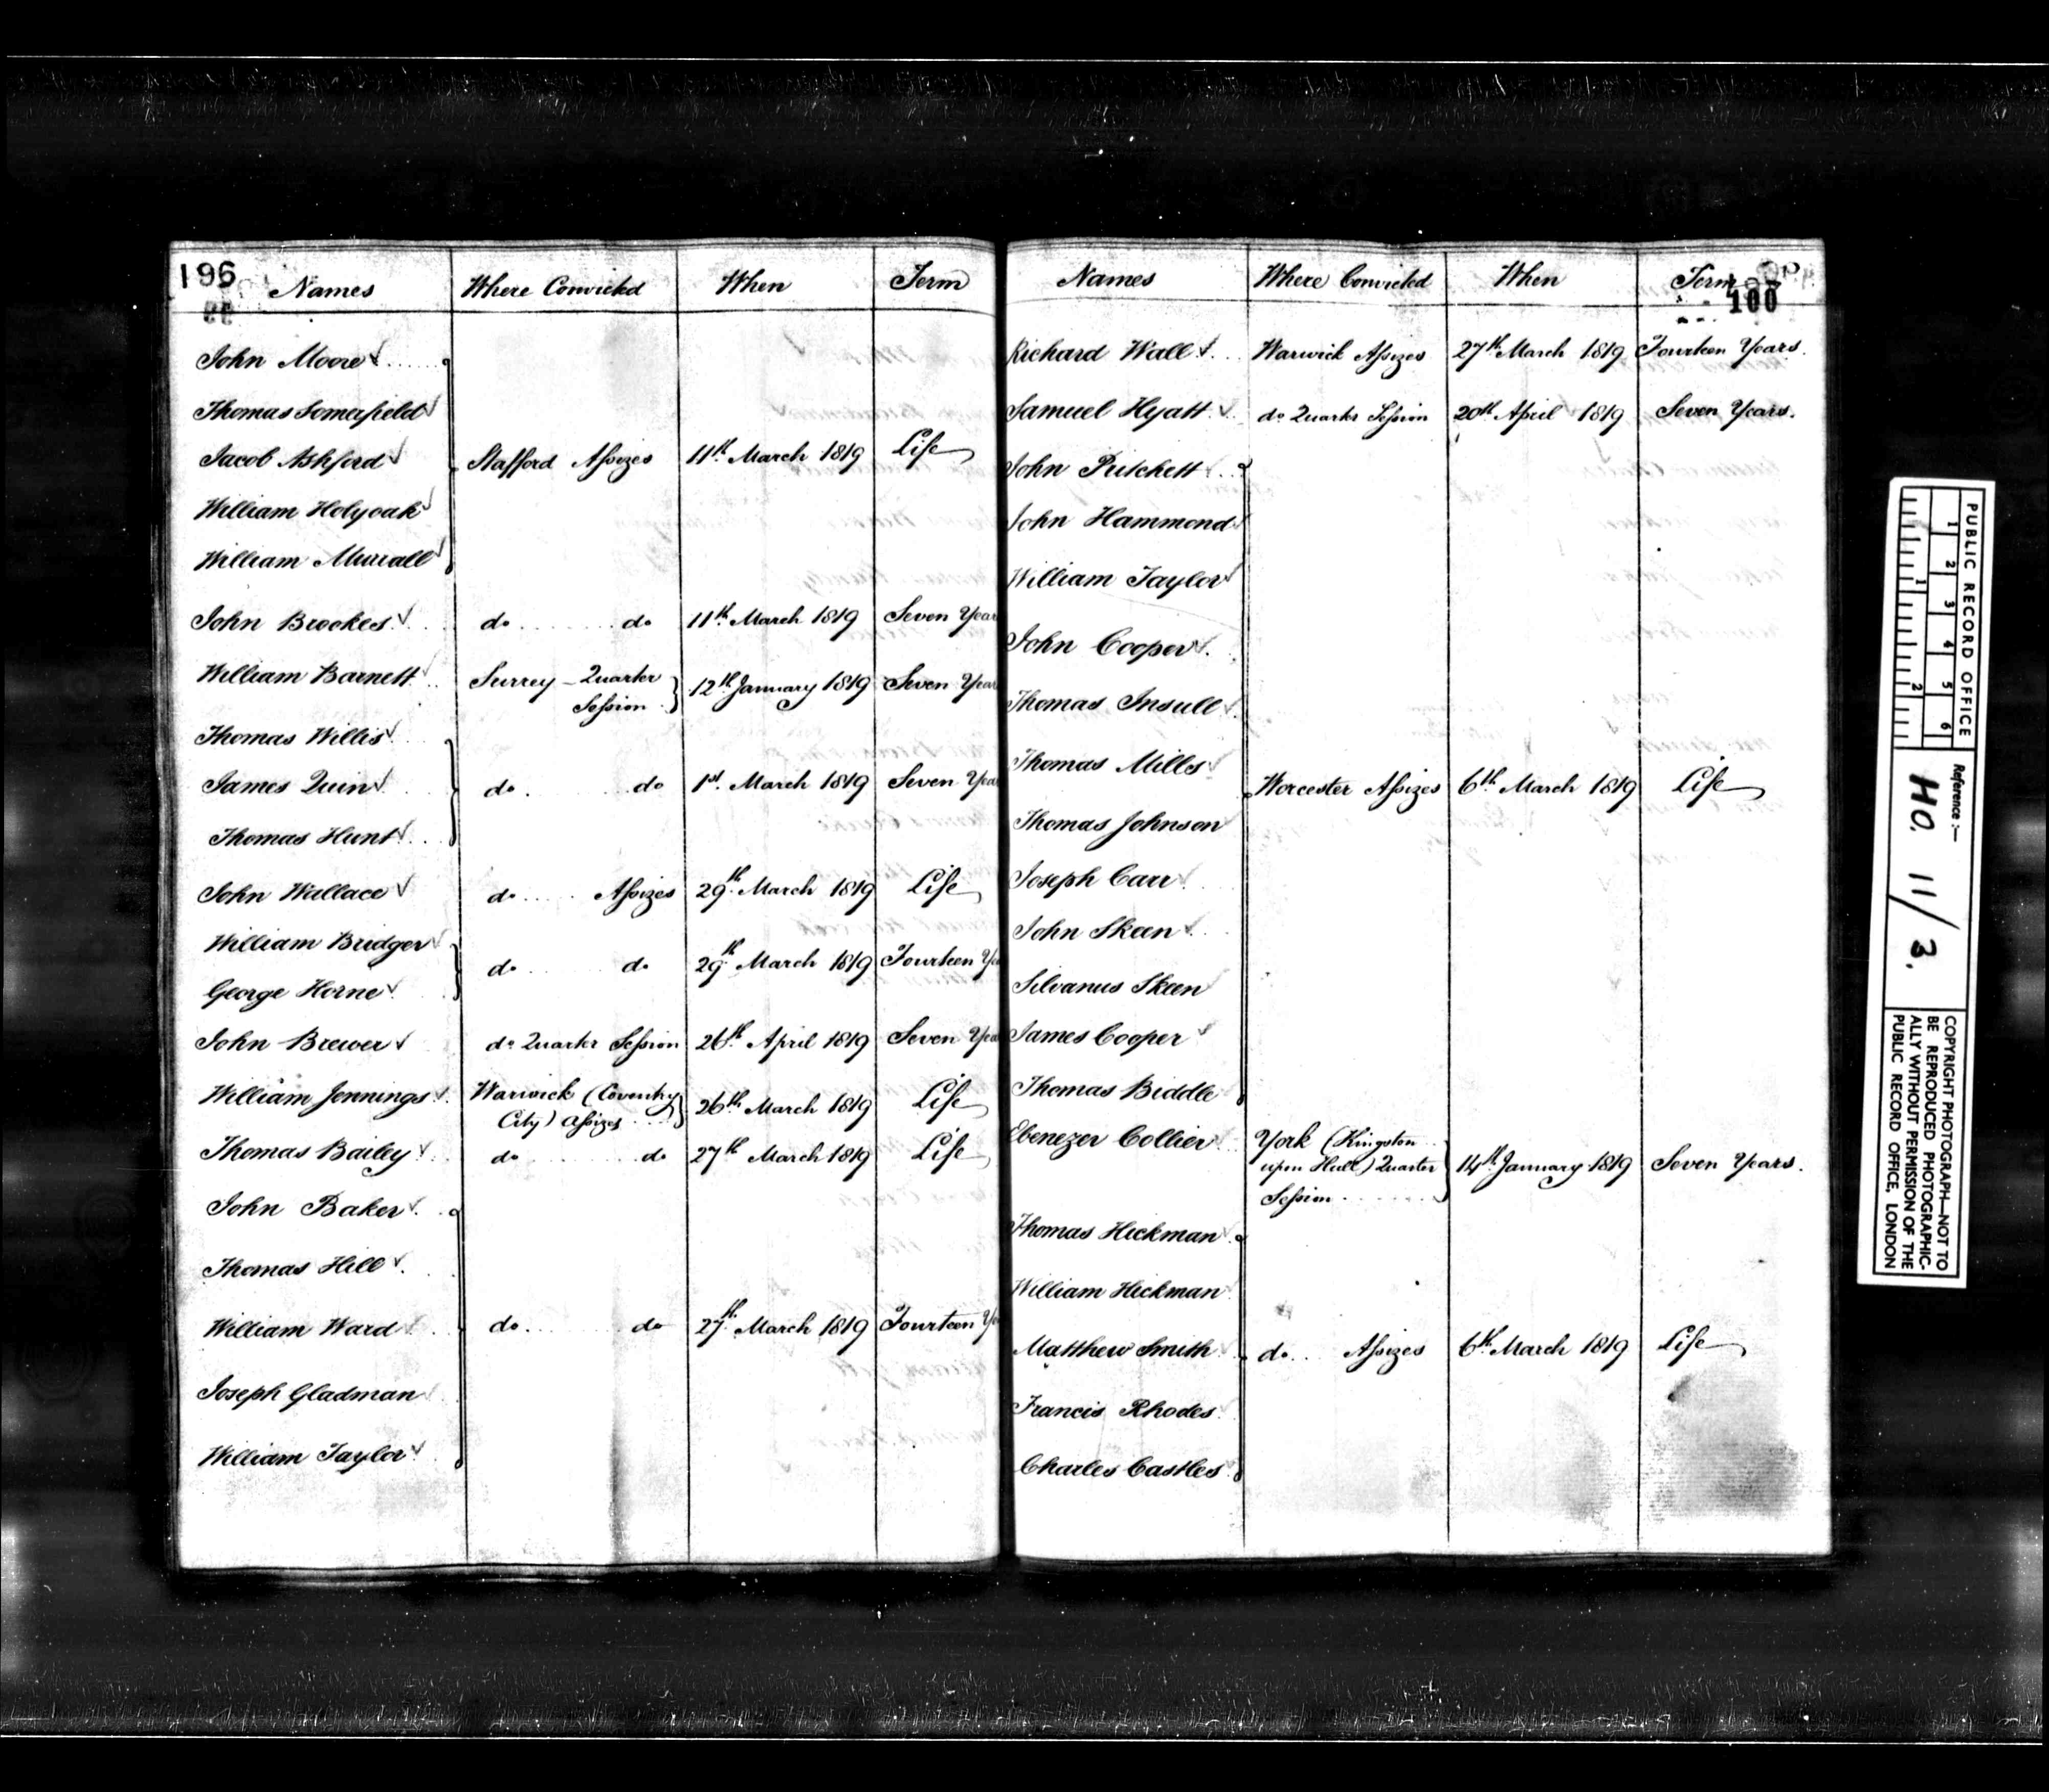 196
Names Where Convicted When Term
John Moore
Thomas Somerfield
Jacob Ashford Stafford Assizes 11th March 1819 Life
William Holyoak
William Murrall
John Brookes do do 11th March 1819 Seven Year
William Barnett Surrey - Quarter 12th January 1819 Seven Year
Session
Thomas Willis
James Quin do do 1st March 1819 Seven Yea
Thomas Hunt
John Wallace do Assizes 29th March 1819 Life
William Bridger
do do 29th March 1819 Fourteen Ye
George Horne
John Brewer do Quarter Session 26th April 1819 Seven Yea
William Jennings Warwick (Coventry 26th March 1819 Life
City) Assizes
Thomas Bailey do do 27th March 1819 Life
John Baker
Thomas Hill
William Ward do do 27th March 1819 Fourteen Ye
Joseph Gladman
William Taylor
Names Where Convicted When Term
100
Richard Wall Warwick Assizes 27th March 1819 Fourteen Years.
Samuel Hyatt do Quarter Session 20th April 1819 Seven Years.
John Pritchett
John Hammond
William Taylor
John Cooper
Thomas Insull
Thomas Mills
Worcester Assizes 6th March 1819 Life
Thomas Johnson
Joseph Carr
John Skeen
Silvanus Skeen
James Cooper
Thomas Biddle
Ebenezer Collier York (Kingston
upon Hull) Quarter 14th January 1819 Seven Years.
Session
Thomas Hickman
William Hickman
Matthew Smith do Assizes 6th March 1819 Life
Francis Rhodes
Charles Castles
PUBLIC RECORD OFFICE
1 2 3 4 5 6
1 2
Reference :-
HO. 11/3.
COPYRIGHT PHOTOGRAPH—NOT TO
BE REPRODUCED PHOTOGRAPHIC-
ALLY WITHOUT PERMISSION OF THE
PUBLIC RECORD OFFICE, LONDON